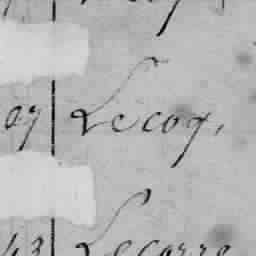 07 Lecoq,
43 Lecorre